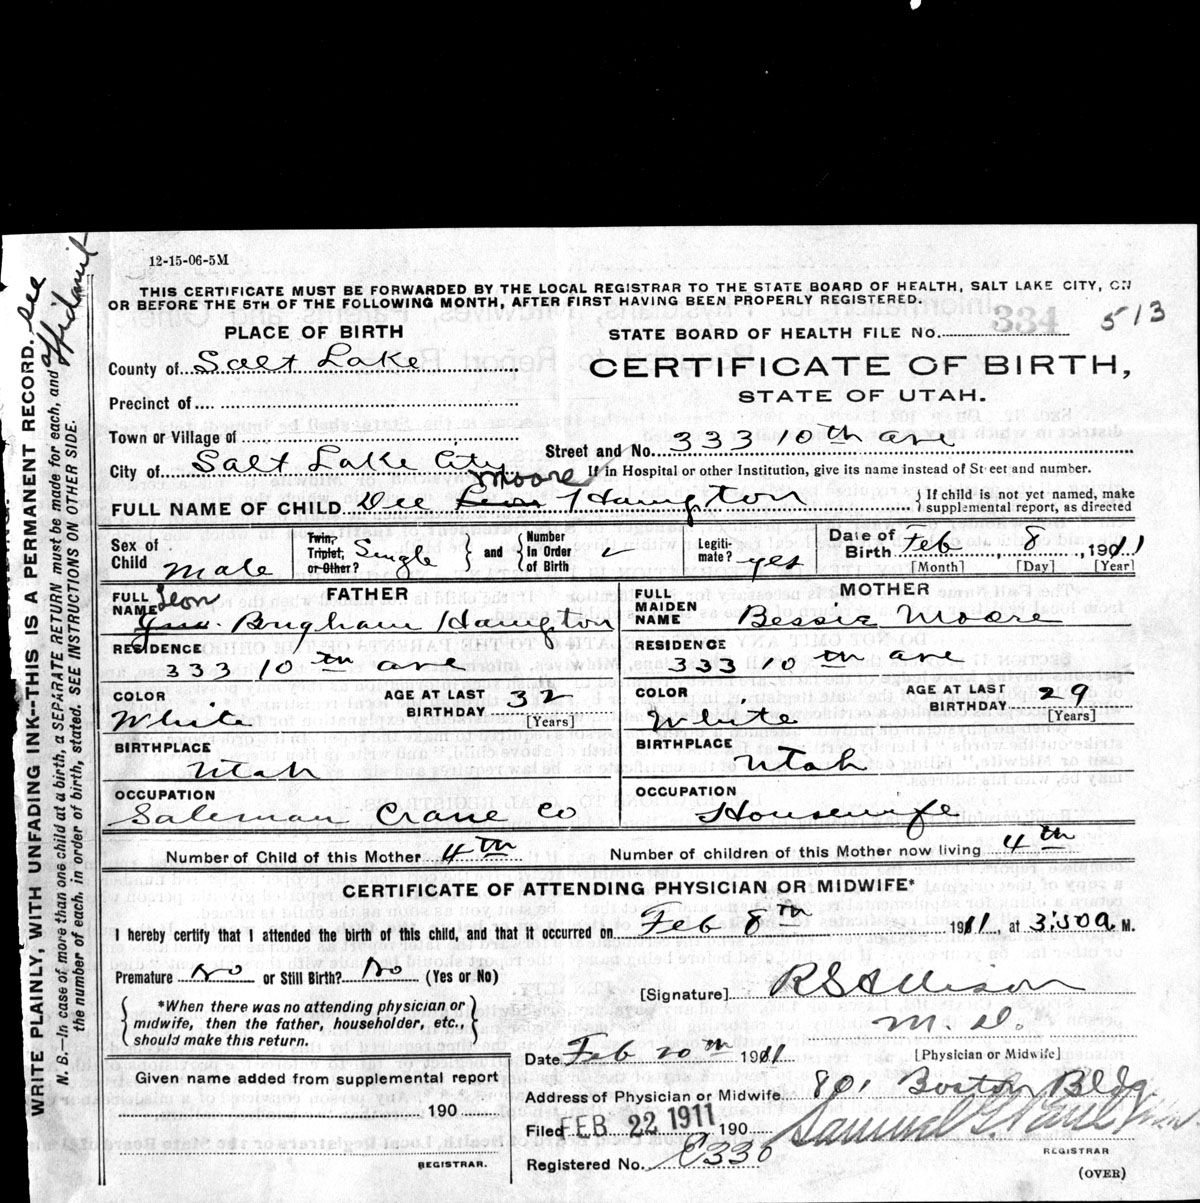 12-15-06-5M
THIS CERTIFICATE MUST BE FORWARDED BY THE LOCAL REGISTRAR TO THE STATE BOARD OF HEALTH, SALT LAKE CITY, ON
OR BEFORE THE 5TH OF THE FOLLOWING MONTH, AFTER FIRST HAVING BEEN PROPERLY REGISTERED.
PLACE OF BIRTH
STATE BOARD OF HEALTH FILE No. 334 513
County of Salt Lake
CERTIFICATE OF BIRTH,
STATE OF UTAH.
Precinct of
Town or Village of
Street and No. 333 10th ave
City of Salt Lake City
If in Hospital or other Institution, give its name instead of Street and number.
Moore
FULL NAME OF CHILD Dee Harrington
{ If child is not yet named, make
supplemental report, as directed
Sex of Child Male
Twin, Triplet, or Other? Single
and
Number in Order of Birth
Legiti-mate? yes
Date of Birth Feb 8, 1911
[Month] [Day] [Year]
FATHER
FULL NAME Leon Brigham Harrington
RESIDENCE
333 10th ave
COLOR White
AGE AT LAST BIRTHDAY 32 [Years]
BIRTHPLACE
Utah
OCCUPATION
Salesman Crane Co
MOTHER
FULL MAIDEN NAME Bessie Moore
RESIDENCE
333 10th ave
COLOR White
AGE AT LAST BIRTHDAY 29 [Years]
BIRTHPLACE
Utah
OCCUPATION
Housewife
Number of Child of this Mother 4th
Number of children of this Mother now living 4th
CERTIFICATE OF ATTENDING PHYSICIAN OR MIDWIFE*
I hereby certify that I attended the birth of this child, and that it occurred on Feb 8th 1911, at 3:50 a. M.
Premature No or Still Birth? No (Yes or No)
[Signature] R S Allison
M.D.
[Physician or Midwife]
*When there was no attending physician or
midwife, then the father, householder, etc.,
should make this return.
Date Feb 20th 1911
Given name added from supplemental report
190
REGISTRAR.
Address of Physician or Midwife 801 Boston Bldg
Filed FEB 22 1911 190
Samuel G Paul
REGISTRAR
Registered No. C330
(OVER)
WRITE PLAINLY, WITH UNFADING INK--THIS IS A PERMANENT RECORD. See affidavit
N. B.—In case of more than one child at a birth, a SEPARATE RETURN must be made for each, and
the number of each, in order of birth, stated. SEE INSTRUCTIONS ON OTHER SIDE.